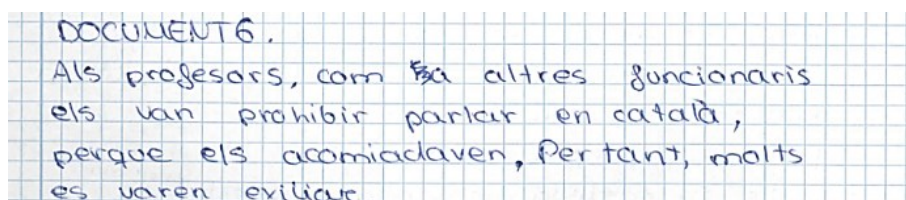 DOCUMENT 6.
Als profesors, com a altres funcionaris
els van prohibir parlar en català,
perque els acomiadaven, Per tant, molts
es varen exiliar